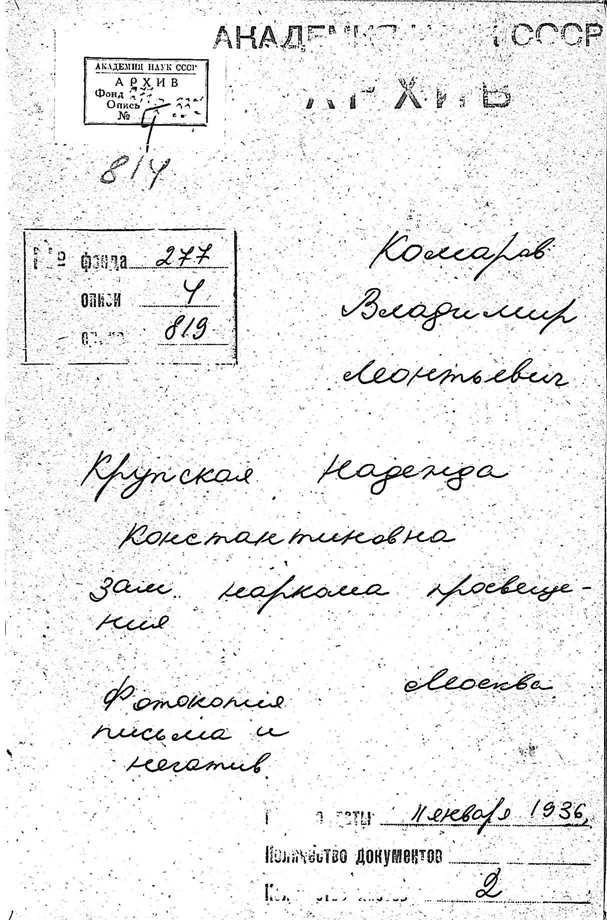 АКАДЕМИЯ СССР
АРХИВ
АКАДЕМИЯ НАУК СССР
АРХИВ
Фонд 277
Опись
№ 4
814
№ фонда 277
описи 4
819
Комаров
Владимир
Леонтьевич
Крупская Надежда
Константиновна
зам. наркома просвеще-
ния
Москва
Фотокопия
письма и
негатив
даты января 1936,
Количество документов
Количество листов 2